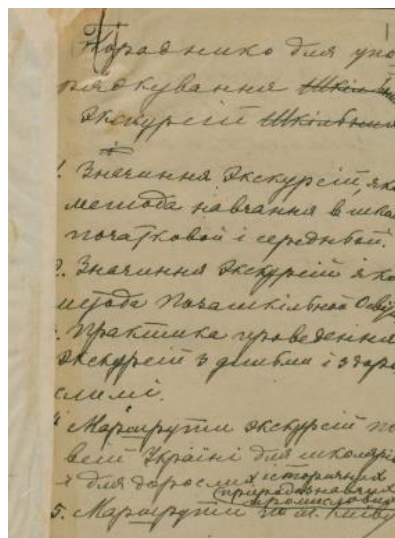 Порадникъ для упо
рядкування
Экскурсій
1. Значиння Экскурсій, яко
метода навчання в шко
початковой і середньой.
2. Значиння Экскурсій яко
метода Позашкільной Осві
3. Практика проведення
Экскурсій з дітьми і здоро
слимі.
4. Маршрути экскурсій по
всій Україні для школярі
і для дорослих історичних
природознавчих
промислових
5. Маршрути по м. Київу